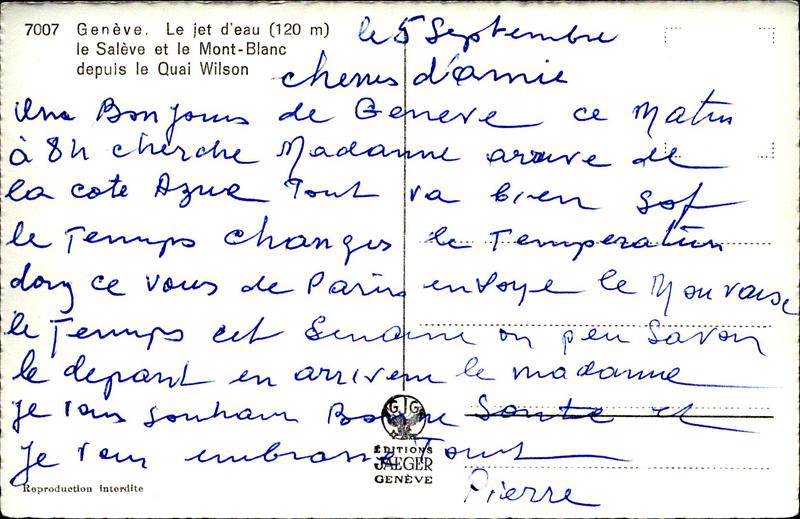 7007 Genève. Le jet d'eau (120 m)
le Salève et le Mont-Blanc
depuis le Quai Wilson
le 5 Septembre
chers d'amie
une Bonjours de Geneve ce Matin
à 8h cherche Madamme arrive de
la cote Azur Tout va bien sof
le Temps changes le Temperatur
donc ce vous de Paris envoye le Mouvaise
le Temps cet Semaine on peu savon
le depart en arrivem le madamme
je vous souhair Bonne Sante et
je vous embrasse Tout
Pierre
ÉDITIONS
JAEGER
GENÈVE
Reproduction interdite